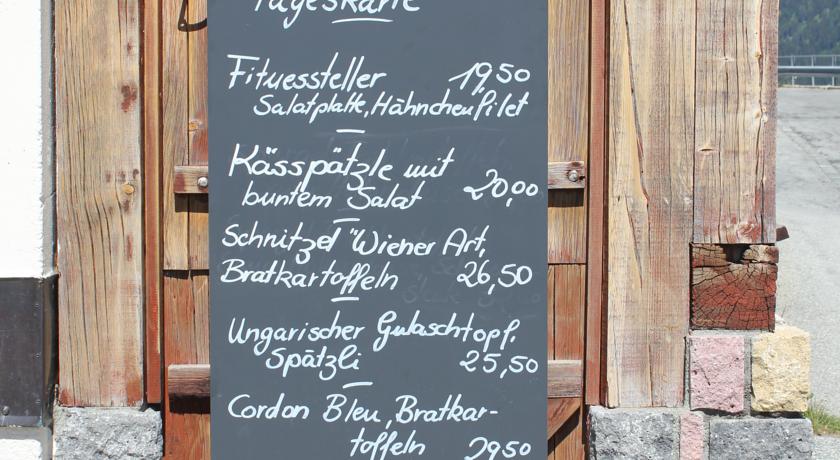 Tageskarte
Fitnessteller 19,50
Salatplatte, Hähnchenfilet
Kässpätzle mit
buntem Salat 20,00
Schnitzel "Wiener Art,
Bratkartoffeln 26,50
Ungarischer Gulaschtopf,
Spätzli 25,50
Cordon Bleu, Bratkar-
toffeln 2950